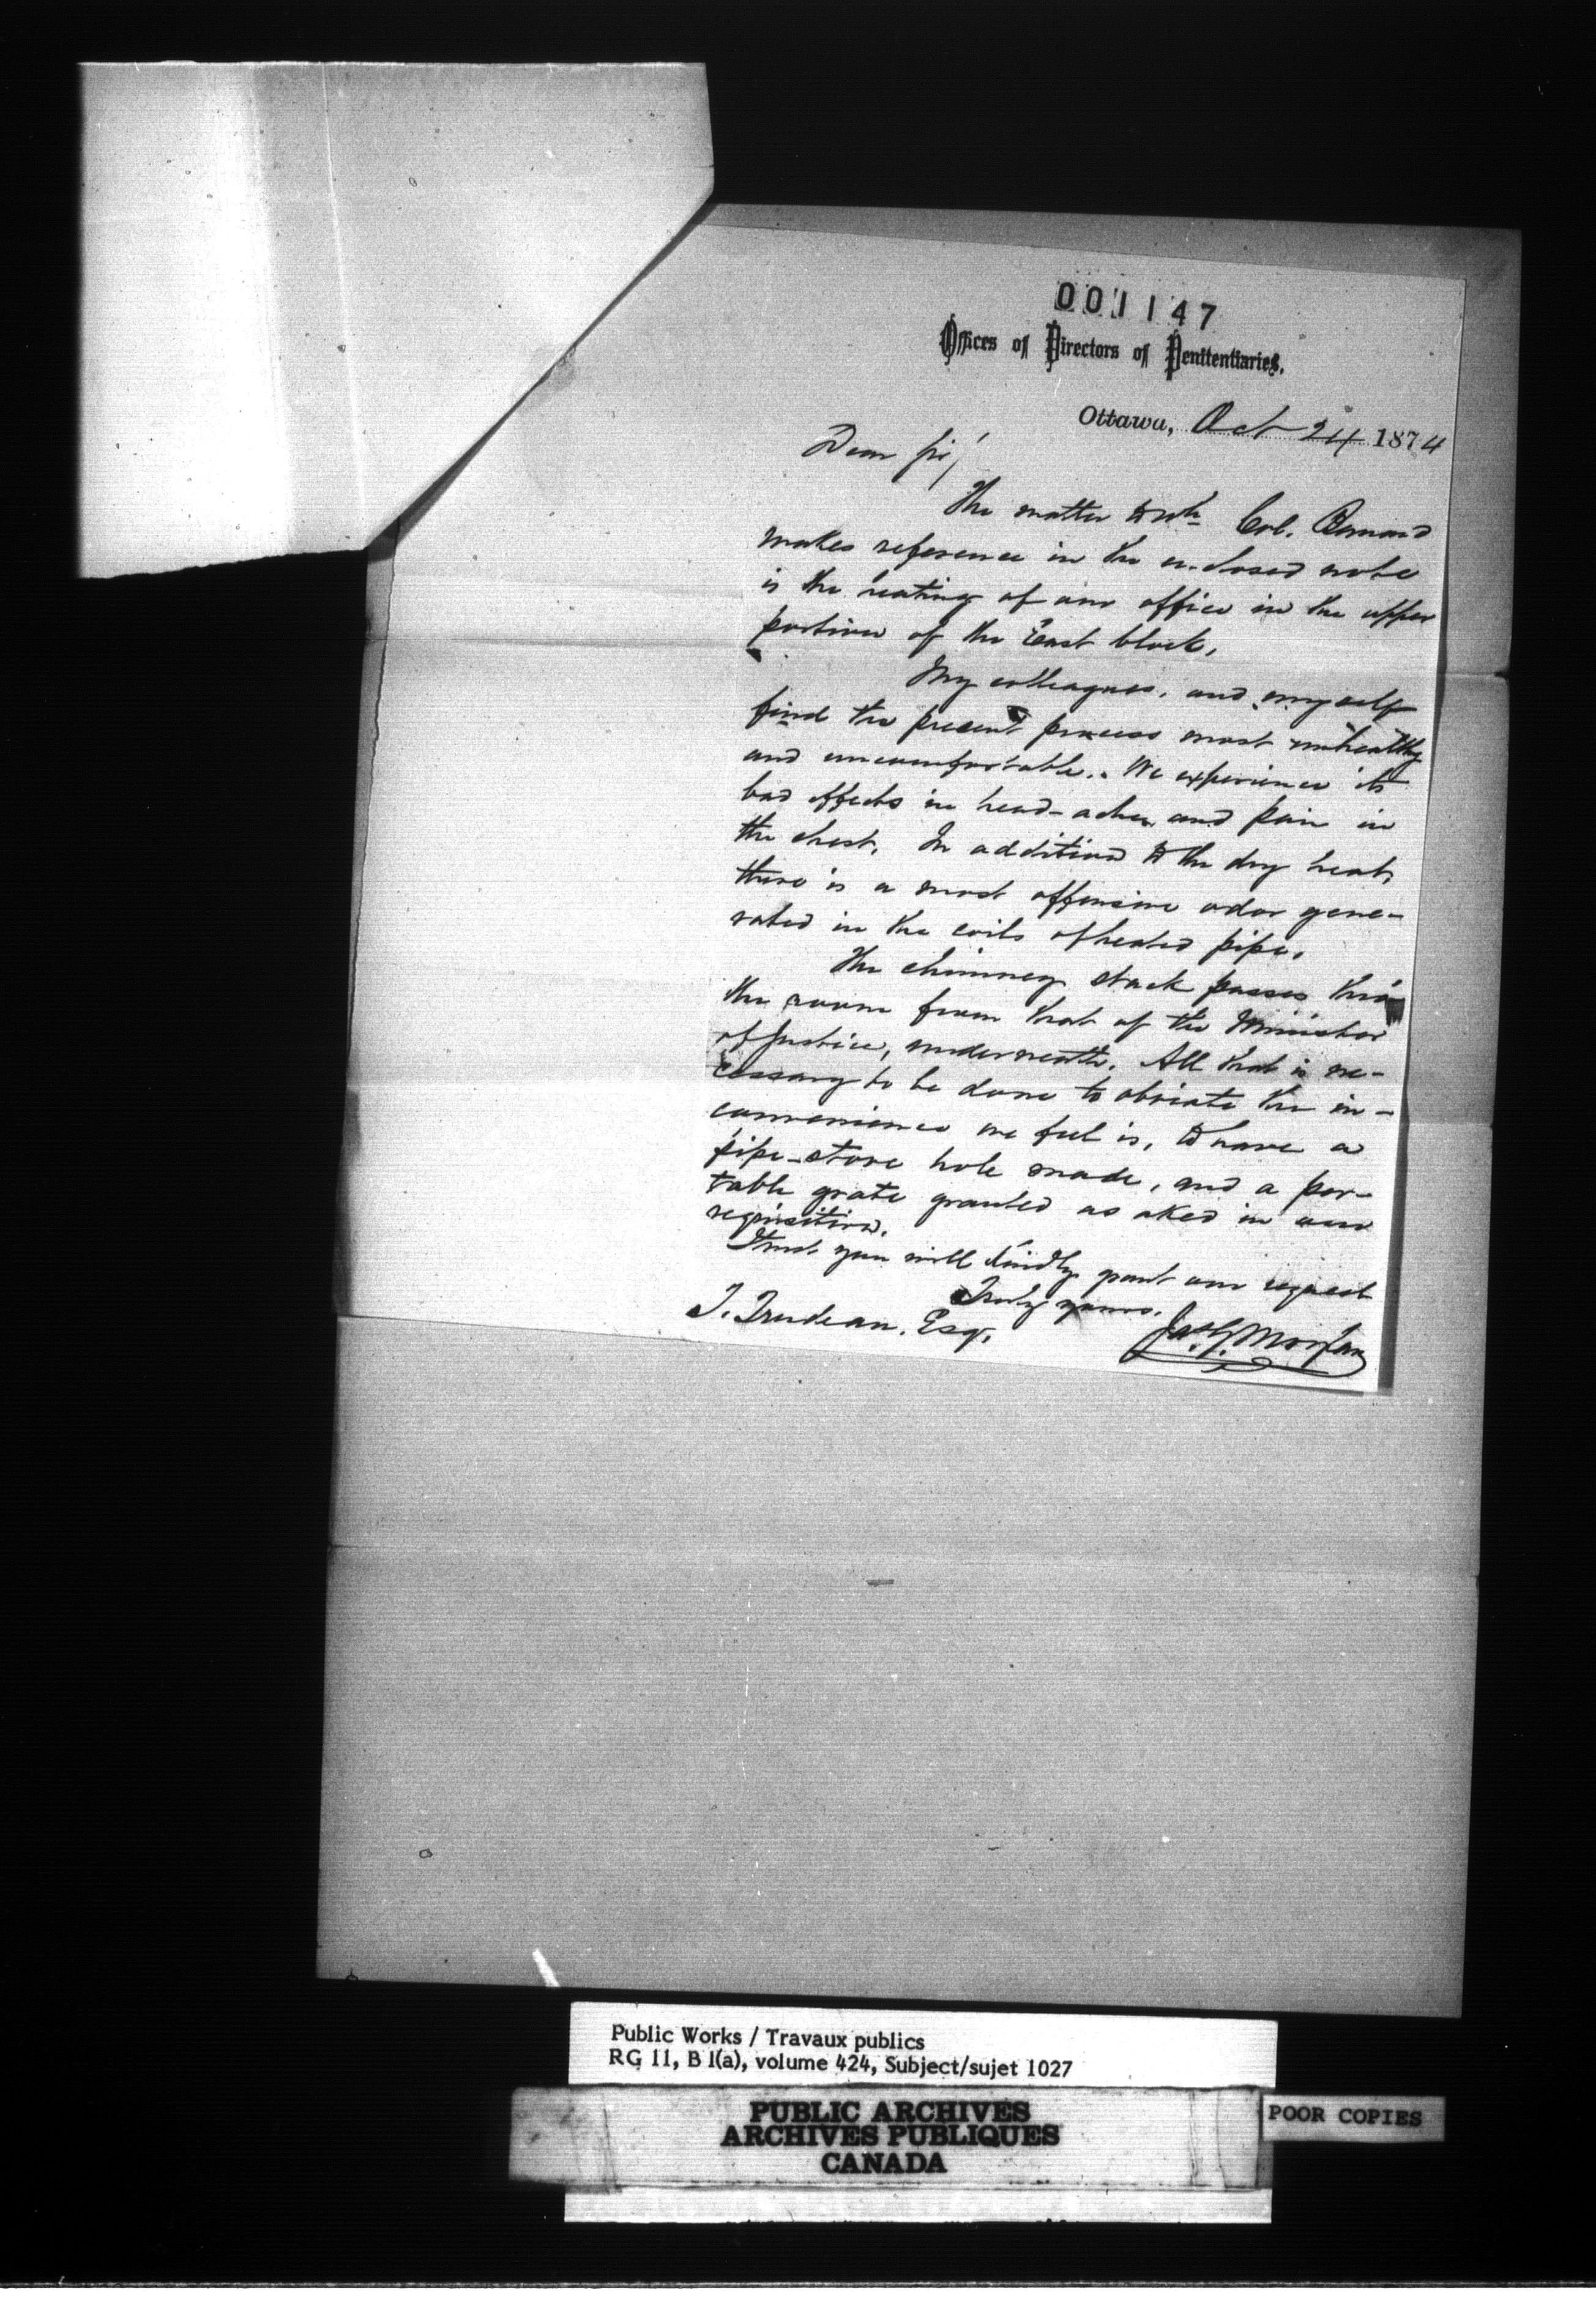 001147
Offices of Directors of Penitentiaries.
Ottawa, Oct 24 1874
Dear Sir/
The matter to wh Col. Bernard
makes reference in the enclosed note
is the heating of our office in the upper
portion of the East block.
My colleagues, and myself
find the present process most unhealthy
and uncomfortable. We experience its
bad effects in head-aches and pain in
the chest. In addition to the dry heat,
there is a most offensive odor gene-
rated in the coils of heated pipe.
The chimney stack passes thro'
the room from that of the Minister
of Justice, underneath. All that is ne-
cessary to be done to obviate the in-
convenience we feel is, to have a
pipe-stove hole made, and a por-
table grate granted as asked in our
requisition.
I trust you will kindly grant our request
Truly yours.
T. Trudeau, Esq.
Jas. G. Moylan
Public Works / Travaux publics
RG 11, B 1(a), volume 424, Subject/sujet 1027
PUBLIC ARCHIVES
ARCHIVES PUBLIQUES
CANADA
POOR COPIES